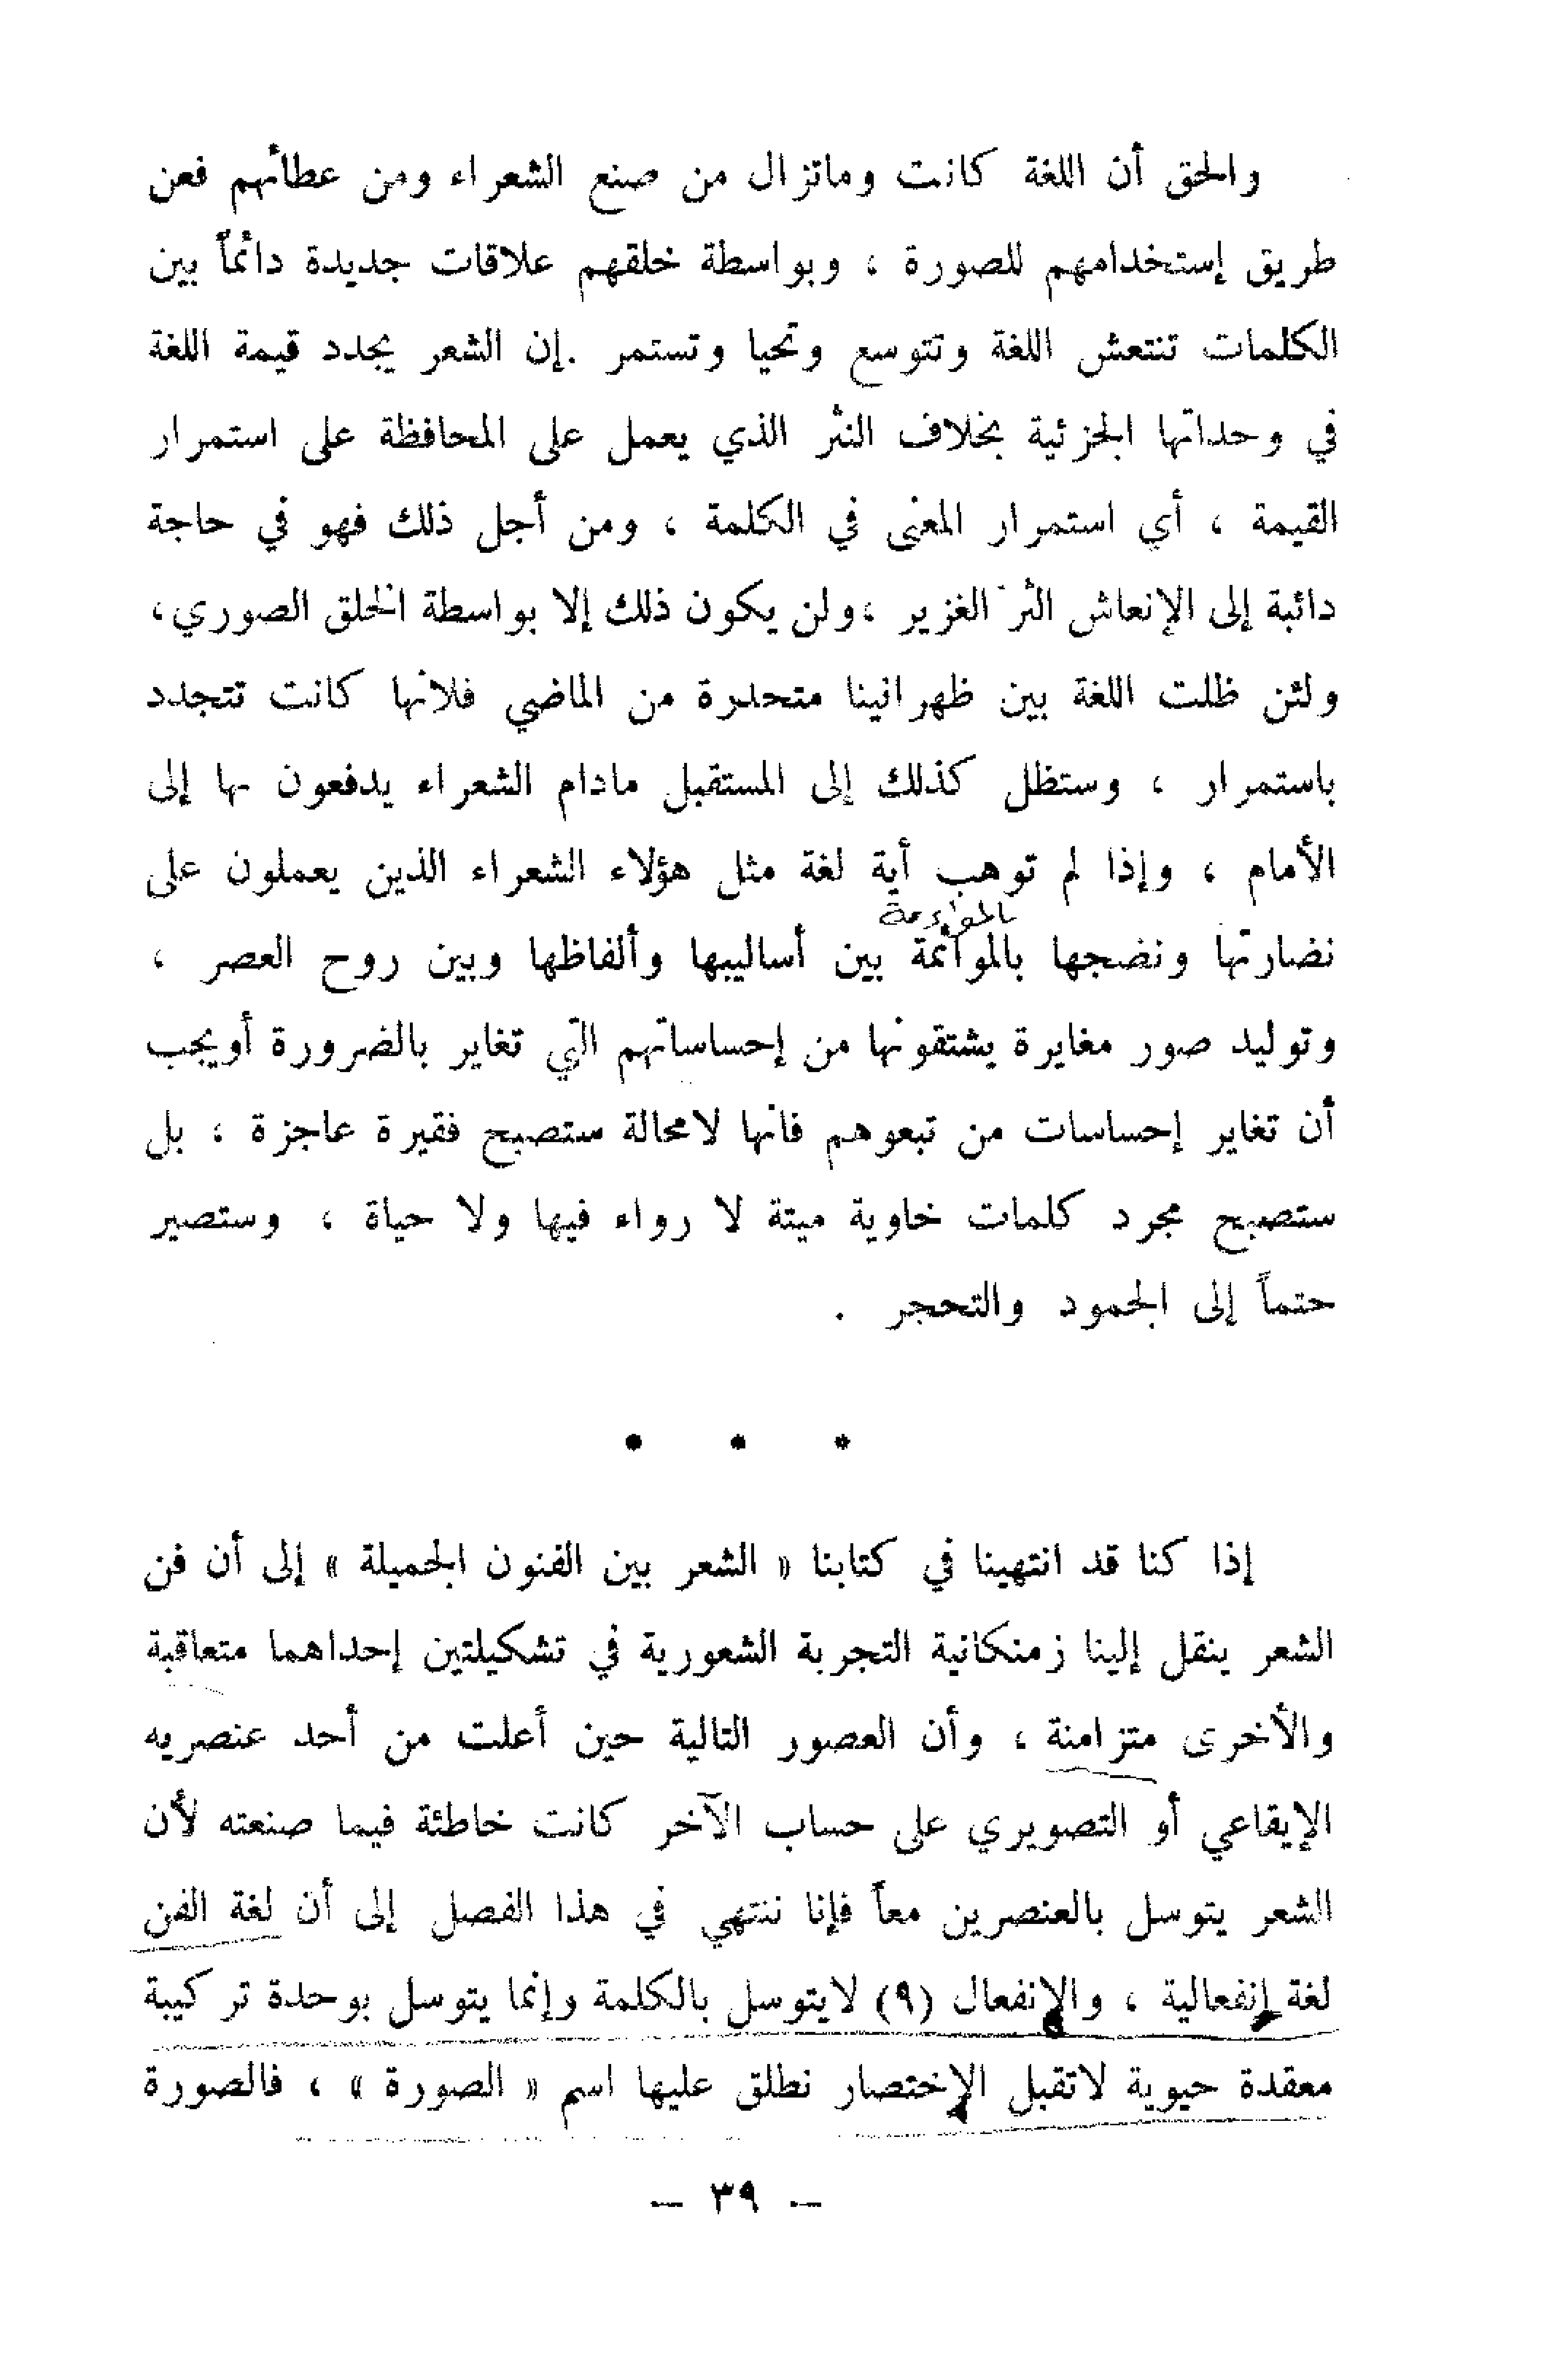 والحق أن اللغة كانت وماتزال من صنع الشعراء ومن عطائهم فعن
طريق إستخدامهم للصورة ، وبواسطة خلقهم علاقات جديدة دائماً بين
الكلمات تنتعش اللغة وتتوسع وتحيا وتستمر .إن الشعر يجدد قيمة اللغة
في وحداتها الجزئية بخلاف النثر الذي يعمل على المحافظة على استمرار
القيمة ، أي استمرار المعنى في الكلمة ، ومن أجل ذلك فهو في حاجة
دائبة إلى الإنعاش الثر الغزير ،ولن يكون ذلك إلا بواسطة الخلق الصوري،
ولئن ظلت اللغة بين ظهرانينا متحدرة من الماضي فلانها كانت تتجدد
باستمرار ، وستظل كذلك إلى المستقبل مادام الشعراء يدفعون بها إلى
الأمام ، وإذا لم توهب أية لغة مثل هؤلاء الشعراء الذين يعملون على
بالمواءمة
نضارتها ونضجها بالموائمة بين أساليبها وألفاظها وبين روح العصر ،
وتوليد صور مغايرة يشتقونها من إحساساتهم التي تغاير بالضرورة أويجب
أن تغاير إحساسات من تبعوهم فانها لامحالة ستصبح فقيرة عاجزة ، بل
ستصبح مجرد كلمات خاوية ميتة لا رواء فيها ولا حياة ، وستصير
حتماً إلى الجمود والتحجر .
* * *
إذا كنا قد انتهينا في كتابنا « الشعر بين الفنون الجميلة » إلى أن فن
الشعر ينقل إلينا زمنكانية التجربة الشعورية في تشكيلتين إحداهما متعاقبة
والأخرى متزامنة ، وأن العصور التالية حين أعلت من أحد عنصريه
الإيقاعي أو التصويري على حساب الآخر كانت خاطئة فيما صنعته لأن
الشعر يتوسل بالعنصرين معاً فإنا ننتهي في هذا الفصل إلى أن لغة الفن
لغة إنفعالية ، والإنفعال (٩) لايتوسل بالكلمة وإنما يتوسل بوحدة تركيبة
معقدة حيوية لاتقبل الإختصار نطلق عليها اسم « الصورة » ، فالصورة
— ٣٩ —